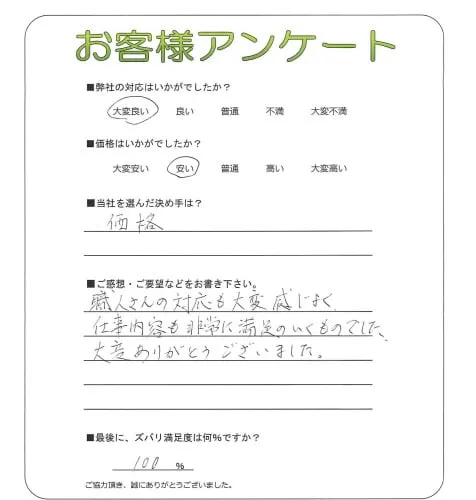 お客様アンケート
■弊社の対応はいかがでしたか？
大変良い 良い 普通 不満 大変不満
■価格はいかがでしたか？
大変安い 安い 普通 高い 大変高い
■当社を選んだ決め手は？
価格
■ご感想・ご要望などをお書き下さい。
職人さんの対応も大変感じよく
仕事内容も非常に満足のいくものでした、
大変ありがとうございました。
■最後に、ズバリ満足度は何％ですか？
100 %
ご協力頂き、誠にありがとうございました。